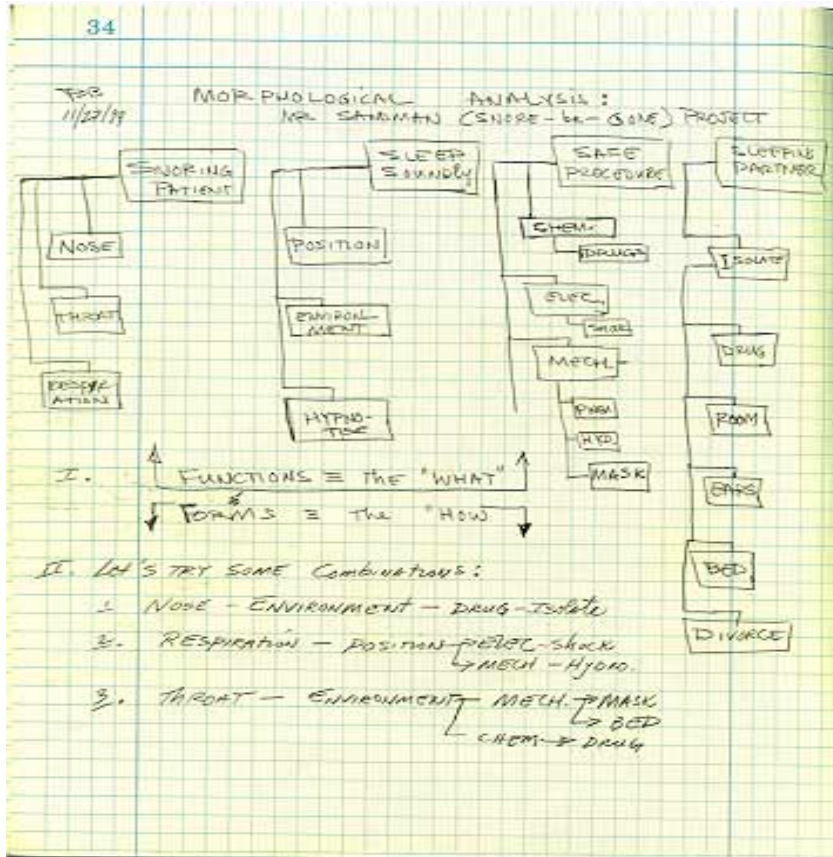 34
11/27/99
MORPHOLOGICAL ANALYSIS:
MR SANDMAN (SNORE-be-GONE) PROJECT
SNORING
PATIENT
NOSE
THROAT
RESPIR
ATION
SLEEP
SOUNDLY
POSITION
ENVIRON-
MENT
HYPNO-
SAFE
PROCEDURE
CHEM.
DRUGS
ELEC.
MECH.
HYD.
MASK
SLEEPING
PARTNER
ISOLATE
DRUG
ROOM
EARS
BED
DIVORCE
I. FUNCTIONS ≡ THE "WHAT"
FORMS ≡ THE "HOW
II. Let'S TRY SOME COMBINATIONS:
1. NOSE - ENVIRONMENT - DRUG - Isolate
2. RESPIRATION - POSITION → ELEC-Shock
→ MECH - Hydro.
3. THROAT - ENVIRONMENT - MECH. → MASK
→ BED
CHEM → DRUG